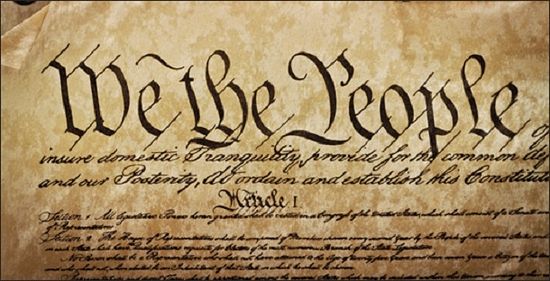 We the People of
insure domestic Tranquility, provide for the common def
and our Posterity, do ordain and establish this Constitut
Article I
Section 1. All legislative Powers herein granted shall be vested in a Congress of the United States, which shall consist of a Senate and
of Representatives.
Section 2. The House of Representatives shall be composed of Members chosen every second Year by the People of the several States, and
in each State shall have Qualifications requisite for Electors of the most numerous Branch of the State Legislature.
No Person shall be a Representative who shall not have attained to the Age of twenty five Years, and been seven Years a Citizen
and who shall not, when elected, be an Inhabitant of that State in which he shall be chosen.